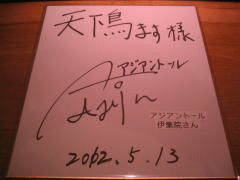 天下鳥ます様
アジアントール
アジアントール
伊集院さん
2002.5.13